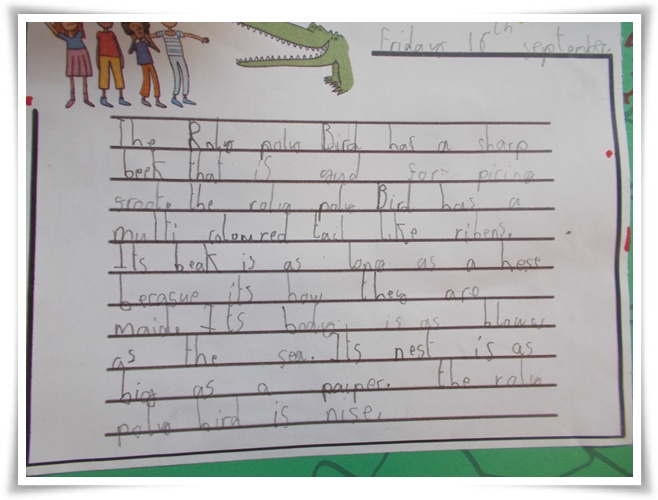 Fridays 16th september.
The Roly poly Bird has a sharp
beek that is gud for
the roly poly Bird has a
multi coloured tail like ribens.
Its beak is as long as a
its how they are
maid. Its body is as
as the sea. Its nest is as
big as a paiper. the roly
poly bird is nise.